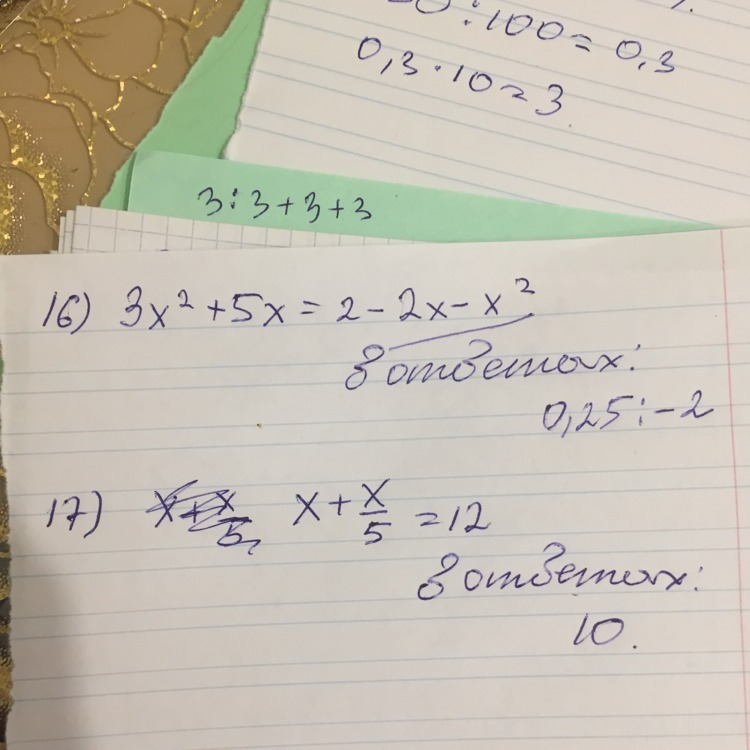 :100=0,3
0,3·10=3
3:3+3+3
16) 3x²+5x=2-2x-x²
в ответах:
0,25;-2
17) x+x/5=12
в ответах:
10.